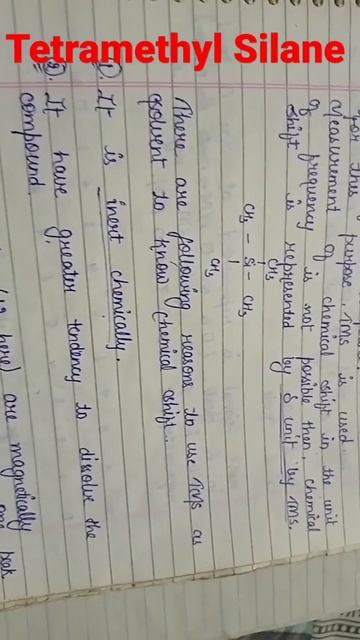 Tetramethyl Silane
for this purpose, TMS is used.
Measurement of chemical shift in the unit
of frequency is not possible then chemical
shift is represented by δ unit by TMS.
CH3
CH3 - Si - CH3
CH3
There are following reasons to use TMS as
solvent to know chemical shift.
1. It is inert chemically.
2. It have greater tendency to dissolve the
compound.
here) are magnetically